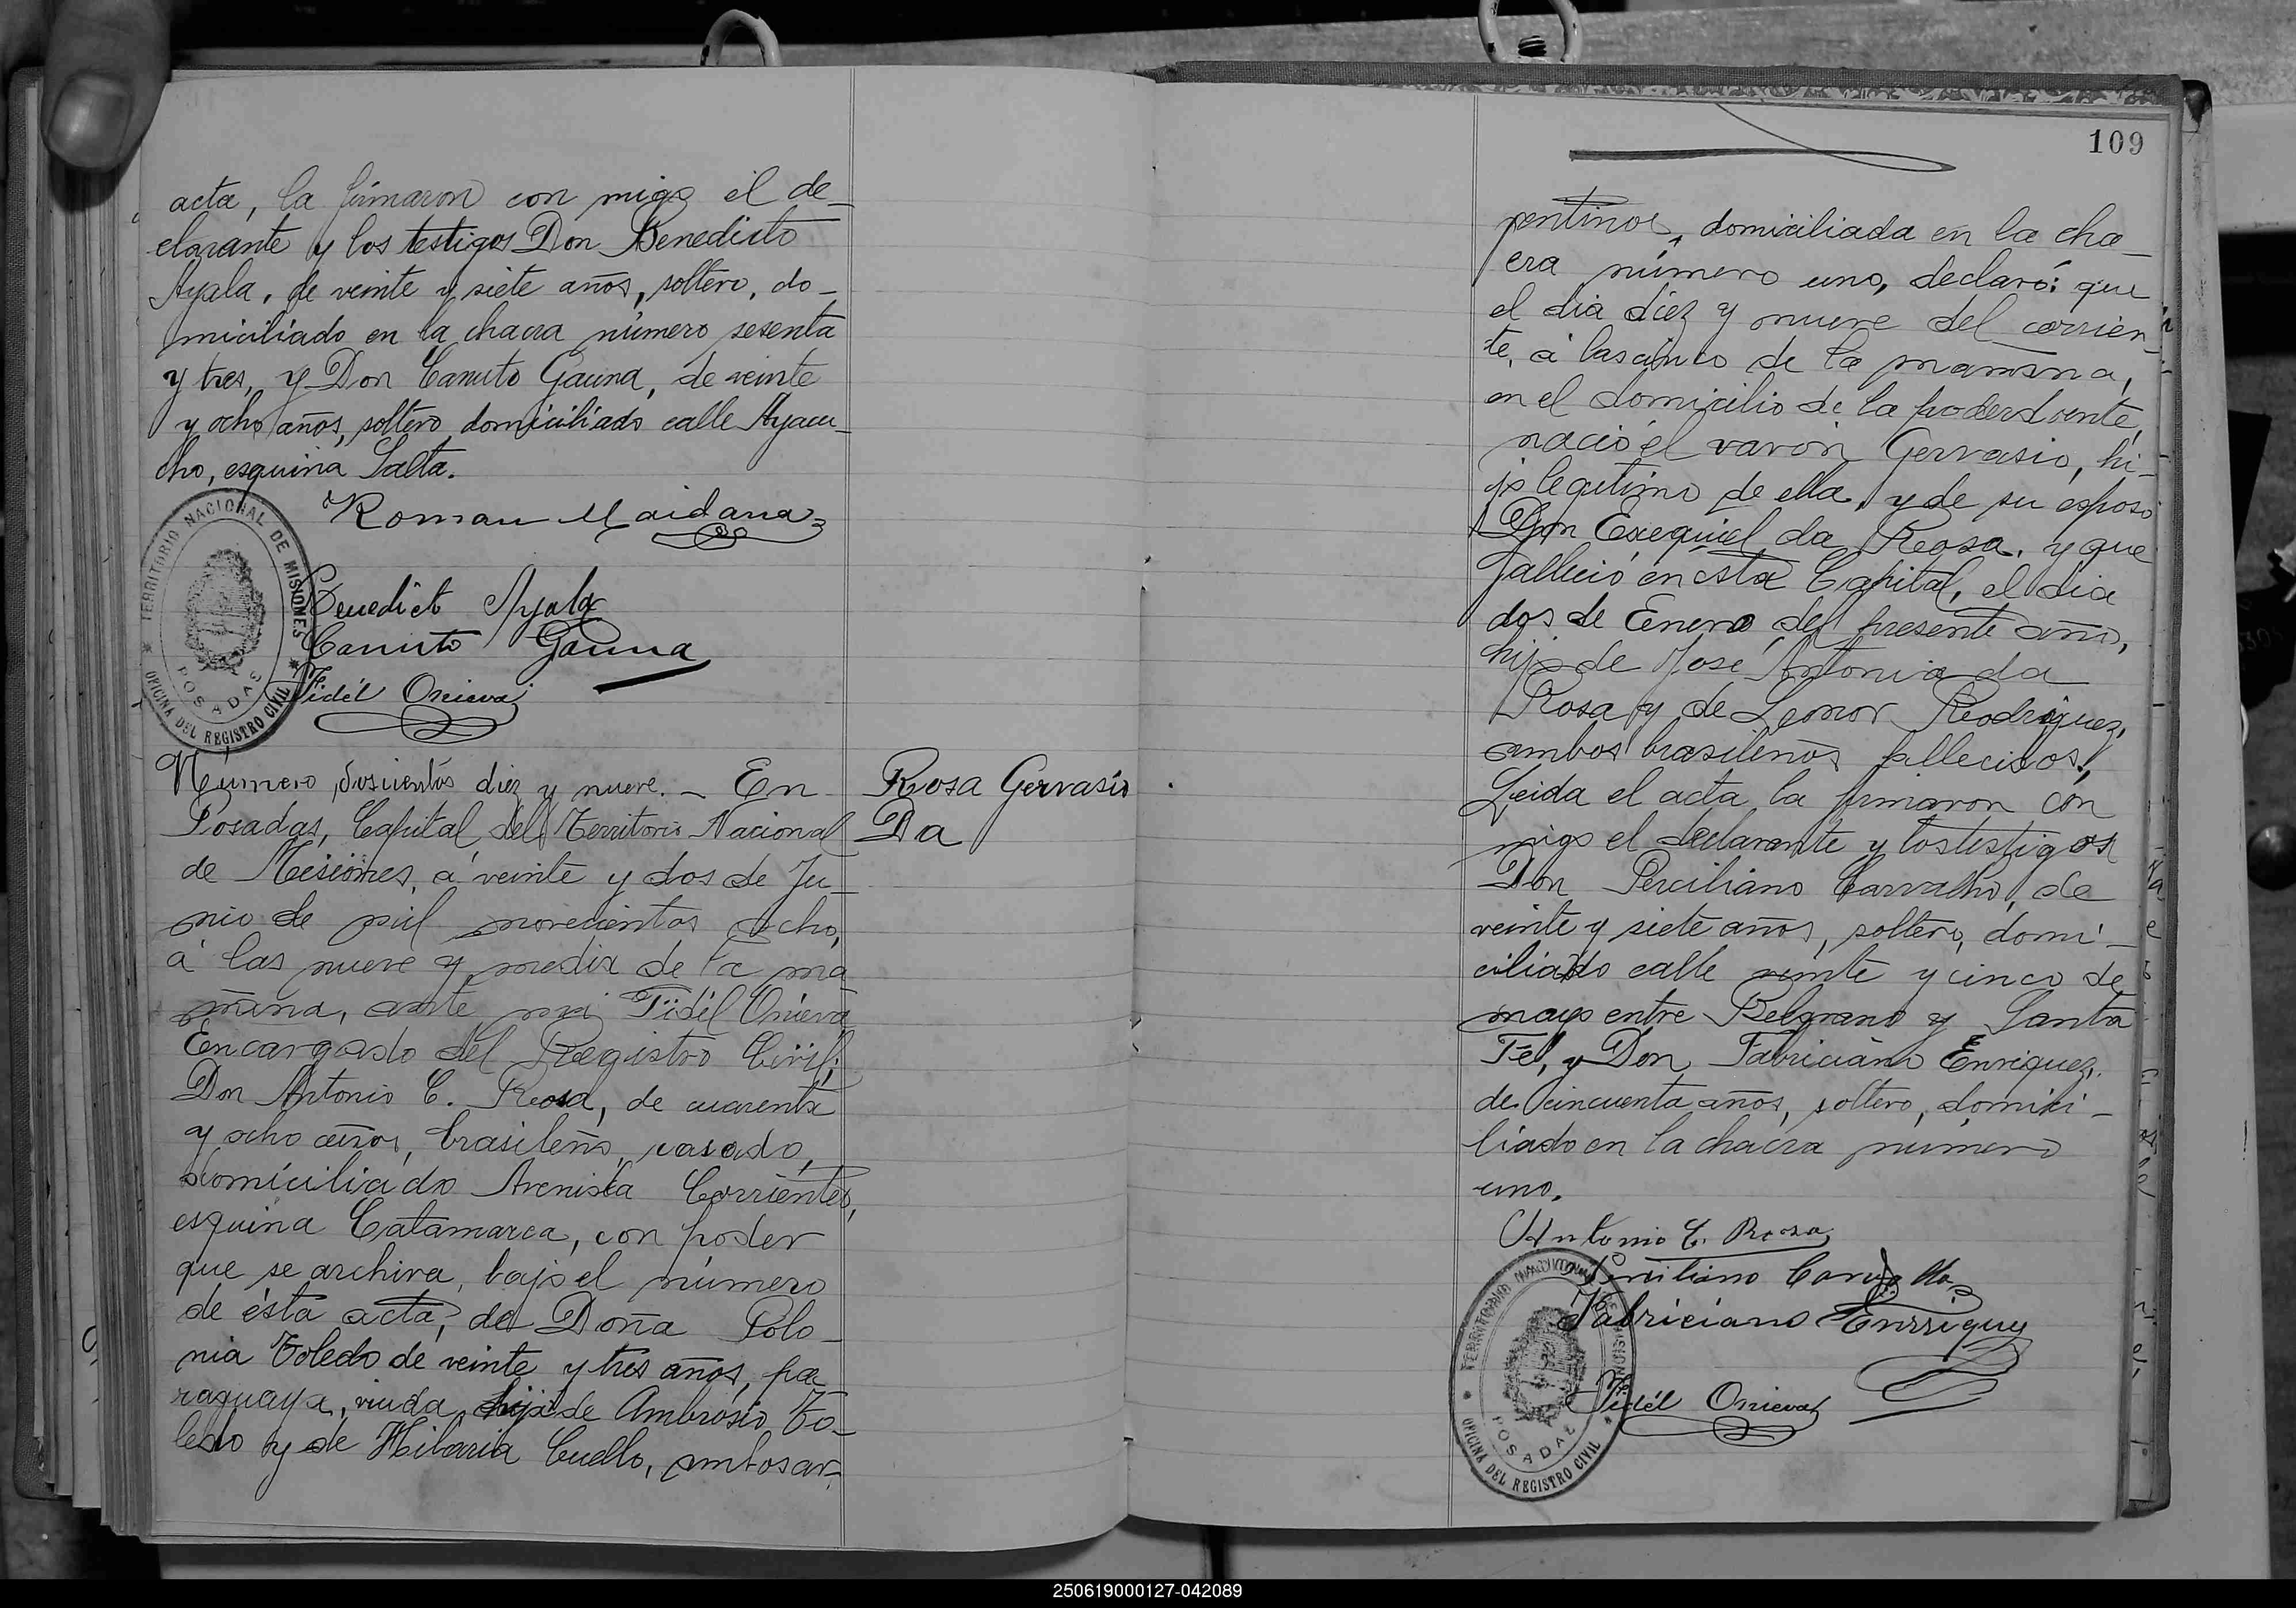 acta, la firmaron con migo el de-
clarante y los testigos Don Benedicto
Ayala, de veinte y siete años, soltero, do-
miciliado en la chacra número sesenta
y tres, y Don Canuto Gauna, de veinte
y ocho años, soltero, domiciliado calle Ayacu-
cho, esquina Salta.
Roman Maidana
Benedict Ayala
Canuto Gauna
Fidél Onieva
TERRITORIO NACIONAL DE MISIONES
POSADAS
OFICINA DEL REGISTRO CIVIL
Número doscientos diez y nueve. - En
Posadas, Capital del Territorio Nacional
de Misiones, á veinte y dos de Ju-
nio de mil novecientos ocho,
á las nueve y media de la ma-
ñana, ante mi Fidél Onieva
Encargado del Registro Civil;
Don Antonio C. Rosa, de cuarenta
y ocho años, brasileño, casado,
domiciliado Avenida Corrientes,
esquina Catamarca, con poder
que se archiva, bajo el número
de ésta acta, de Doña Polo-
nia Toledo de veinte y tres años, pa-
raguaya, viuda, hija de Ambrosio To-
ledo y de Hilaria Cuello, ambos ar-
Rosa Gervasio
Da
109
gentinos, domiciliada en la cha-
cra número uno, declaró: que
el dia diez y nueve del corrien-
te, á las cinco de la mañana,
en el domicilio de la poderdante,
nació el varón Gervasio, hi-
jo legítimo de ella, y de su esposo
Don Exequiel da Rosa, y que
falleció en ésta Capital, el dia
dos de Enero del presente año,
hijo de José Antonio da
Rosa y de Leonor Rodriguez,
ambos brasileños fallecidos.
Leida el acta, la firmaron con
migo el declarante y los testigos
Don Perciliano Carvalho, de
veinte y siete años, soltero, domi-
ciliado calle veinte y cinco de
mayo entre Belgrano y Santa
Fé, y Don Fabriciano Enriquez,
de cincuenta años, soltero, domici-
liado en la chacra número
uno.
Antonio C. Rosa
Perciliano Carvalho
Fabriciano Enrriquez
Fidél Onieva
TERRITORIO NACIONAL DE MISIONES
POSADAS
OFICINA DEL REGISTRO CIVIL
250619000127-042089